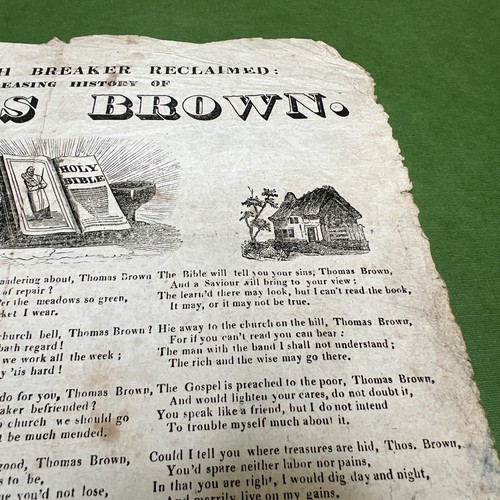 H BREAKER RECLAIMED:
EASING HISTORY OF
S BROWN.
HOLY
BIBLE
ndering about, Thomas Brown
of repair?
er the meadows so green,
ket I wear.
church bell, Thomas Brown?
bath regard!
we work all the week;
y 'tis hard!
do for you, Thomas Brown,
aker befriended?
o church we should go
t be much mended.
good, Thomas Brown,
s to be,
me you'd not lose,
The Bible will tell you your sins, Thomas Brown,
And a Saviour will bring to your view;
The learn'd there may look, but I can't read the book,
It may, or it may not be true.
Hie away to the church on the hill, Thomas Brown,
For if you can't read you can hear;
The man with the band I shall not understand;
The rich and the wise may go there.
The Gospel is preached to the poor, Thomas Brown,
And would lighten your cares, do not doubt it,
You speak like a friend, but I do not intend
To trouble myself much about it.
Could I tell you where treasures are hid, Thos. Brown,
You'd spare neither labor nor pains,
In that you are right, I would dig day and night,
And merrily live on my gains.